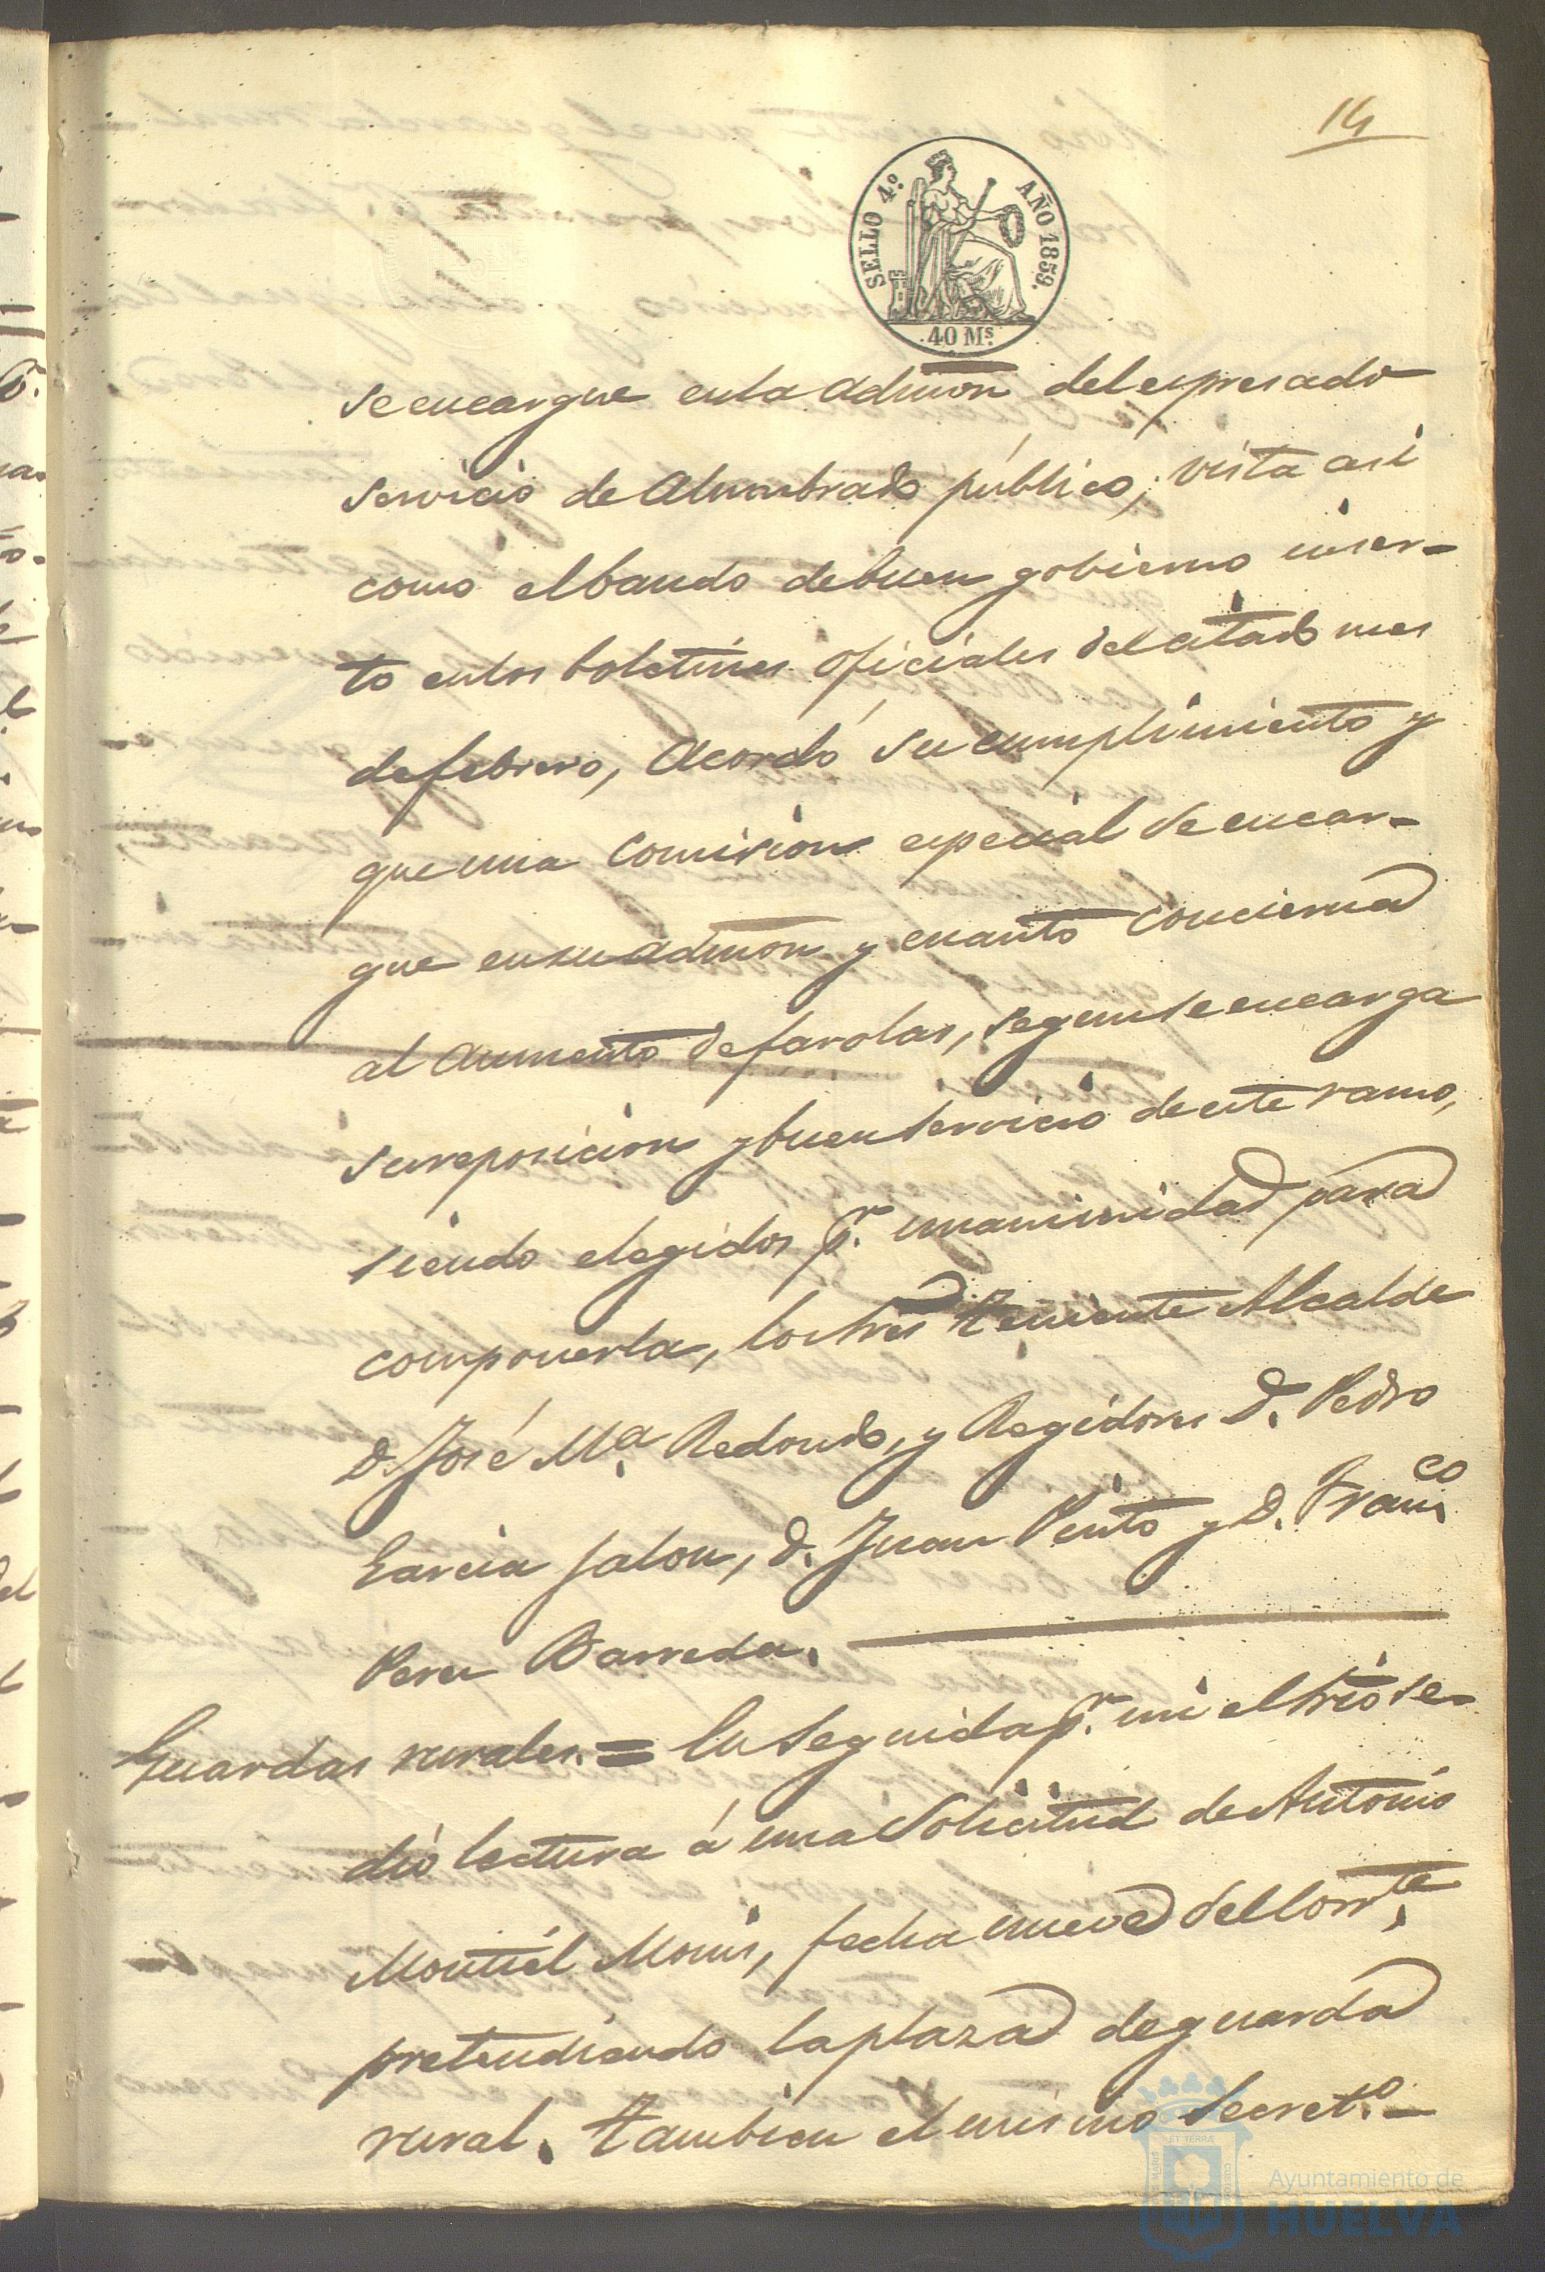 14
SELLO 4º. AÑO 1859.
40 Ms.
se encargue en la admon del espresado
servicio de alumbrado público; vista asi
como el bando de buen gobierno inser-
to en los boletines oficiales del citado mes
de febrero, acordó su cumplimiento y
que una comision especial se encar-
gue en su admon y cuanto concierna
al aumento de farolas, segun se encarga
su reposicion y buen servicio de este ramo,
siendo elegidos pr. unanimidad para
componerla, los tres teniente Alcalde
D. José Ma. Redondo, y Regidores D. Pedro
Garcia Jalon, D. Juan Pinto y D. Franco
Perez Barreda.
Guardas rurales. = En seguida pr. mi el srio se
dió lectura á una solicitud de Antonio
Montiel Monis, fecha nueve del corrte.
pretendiendo la plaza de guarda
rural. Tambien el mismo Secreto. -
ET TERRÆ
Ayuntamiento de
HUELVA